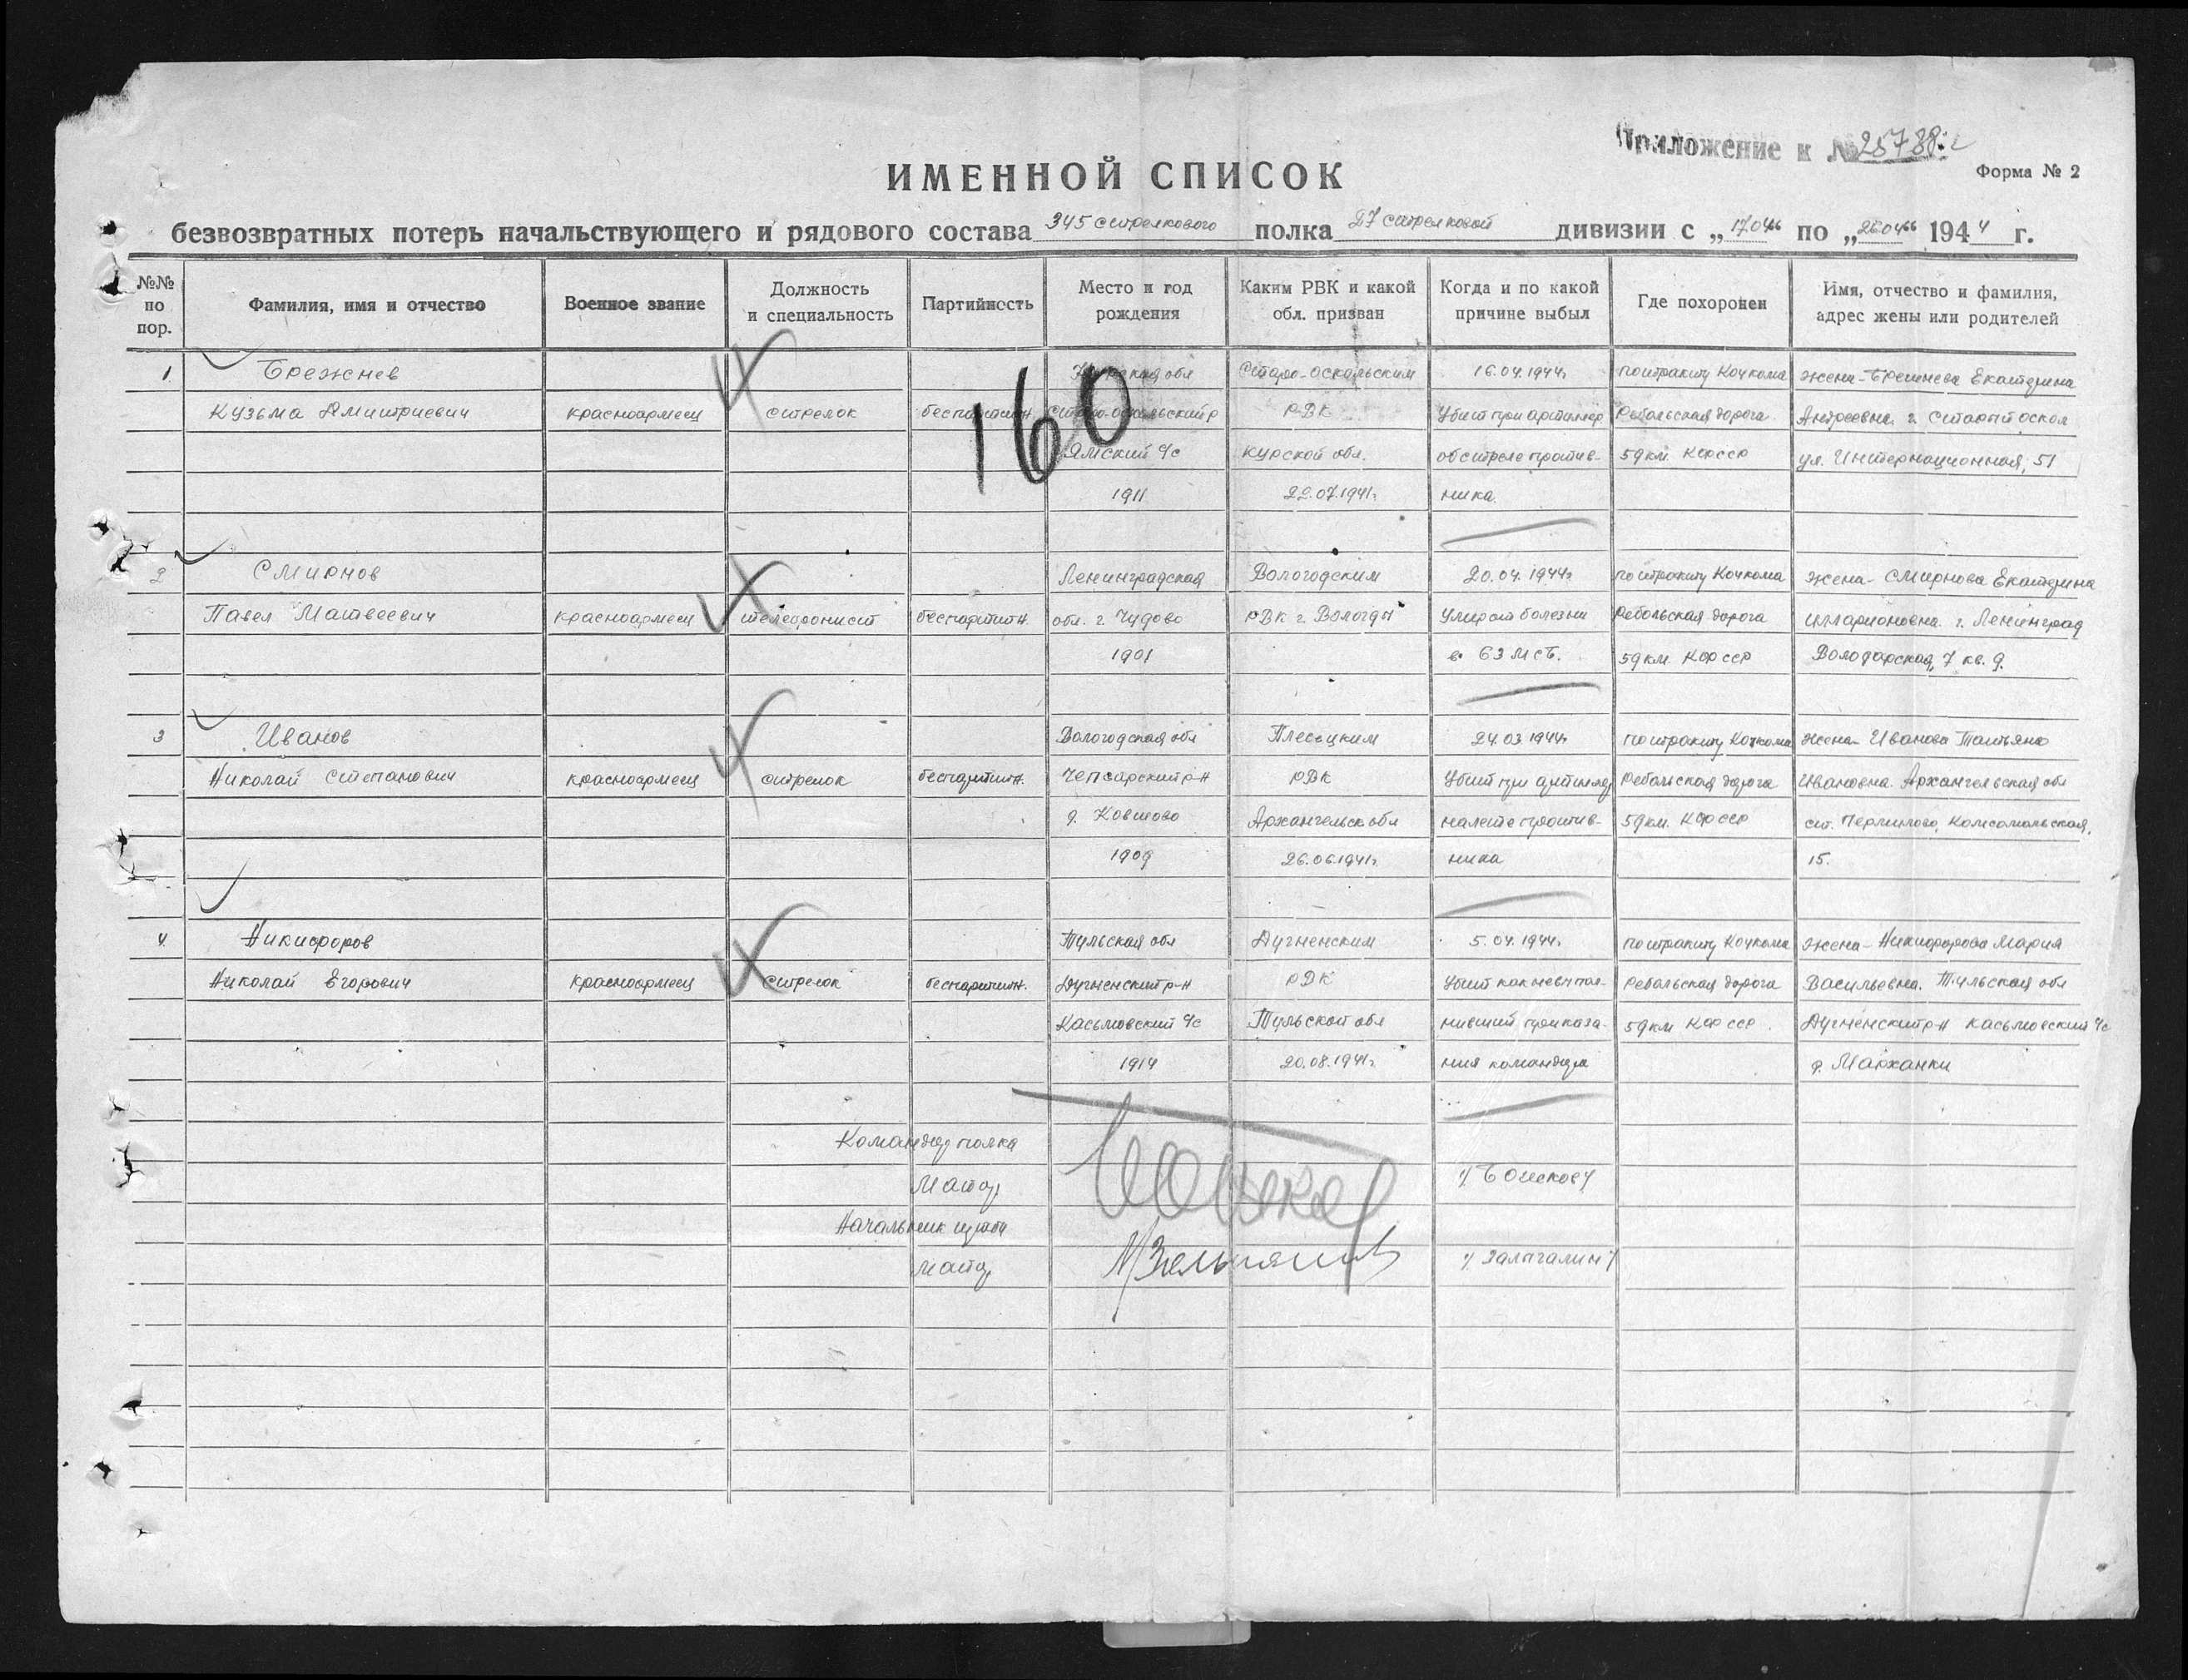 Приложение к № 25788с
Форма № 2
ИМЕННОЙ СПИСОК
безвозвратных потерь начальствующего и рядового состава 345 стрелкового полка 27 стрелковой дивизии с „17.04“ по „26.04“ 1944 г.
№№ по пор.
Фамилия, имя и отчество
Военное звание
Должность и специальность
Партийность
Место и год рождения
Каким РВК и какой обл. призван
Когда и по какой причине выбыл
Где похоронен
Имя, отчество и фамилия, адрес жены или родителей
160
1 Брежнев Курская обл Старо-Оскольским 16.04.1944г. по тракту Кочкома жена-Брежнева Екатерина
Кузьма Дмитриевич красноармеец стрелок беспартийн Старо-оскольский р РВК Убит при артилер Ребольская дорога Андреевна г. Старый оскол
Ямский с/с Курской обл. обстреле против- 59 км. КФССР ул. Интернационная, 51
1911 22.07.1941г. ника.
2 Смирнов Ленинградская Вологодским 20.04.1944г по тракту Кочкома жена-Смирнова Екатерина
Павел Матвеевич красноармеец телефонист беспартийн. обл. г. Чудово РВК г. Вологды Умер от болезни Ребольская дорога Илларионовна. г. Ленинград
1901 в 63 МСБ. 59 км КФССР Володарская, 7 кв. 9.
3 Иванов Вологодская обл Плесецким 24.03.1944г по тракту Кочкома жена-Иванова Татьяна
Николай Степанович красноармеец стрелок беспартийн. Чепсарский р-н РВК Убит при артилер Ребольская дорога Ивановна. Архангельская обл
д. Ковшово Архангельск обл налете против- 59 км. КФССР ст. Пермилово, Комсомольская,
1909 26.06.1941г ника 15.
4. Никифоров Тульская обл Дугненским 5.04.1944г. по тракту Кочкома жена-Никифорова Мария
Николай Егорович красноармеец стрелок беспартийн. Дугненский р-н РВК Убит как невыпол- Ребольская дорога Васильевна. Тульская обл
Касьмовский с/с Тульской обл нивший приказа- 59 км КФССР. Дугненский р-н Касьмовский с/с
1914 20.08.1941г. ния командира д. Марханки
Командир полка
Майор /Бошков/
Начальник штаба
Майор /Залпгалин/